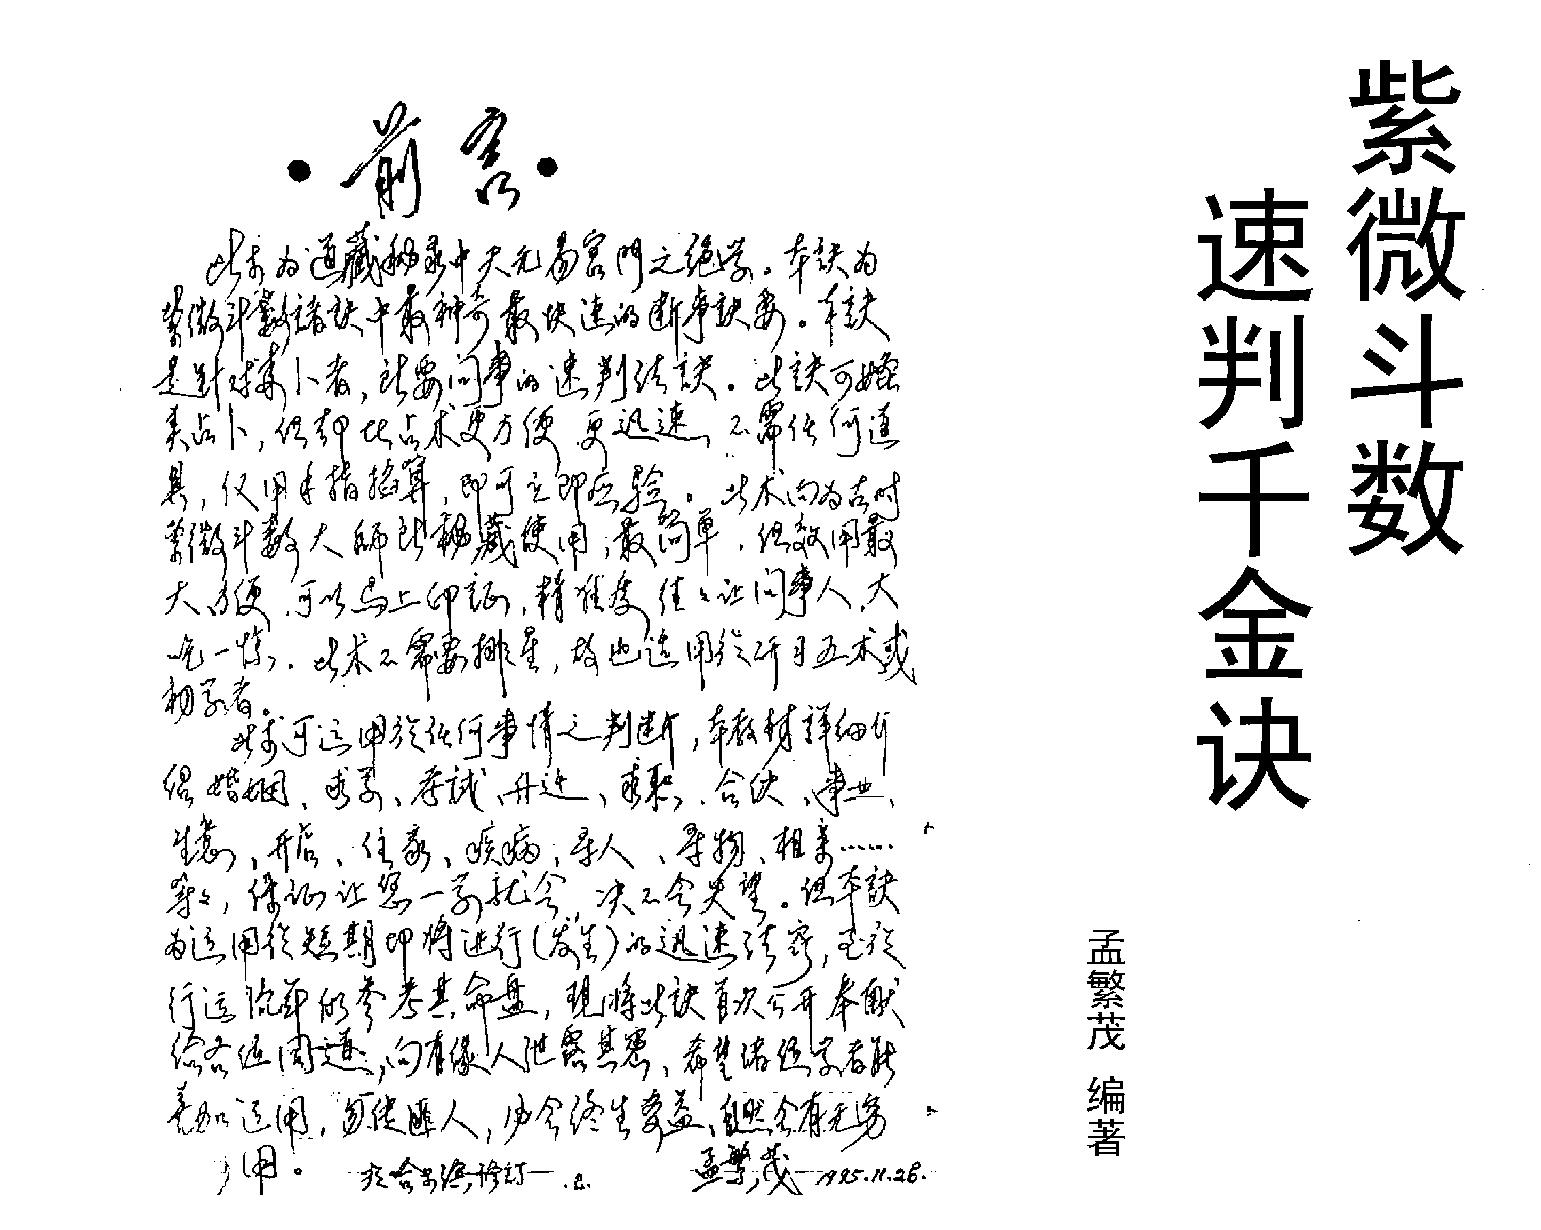 紫微斗数
速判千金诀
孟繁茂 编著
·前言·
此术为道藏秘录中天元易客門之绝学。本訣为
紫微斗數諸訣中最神奇最快速的断事訣要。本訣
是針对来卜者,所要问事的速判法訣。此訣可
类占卜,但却比占术更方便、更迅速,不需任何道
具,仅用手指掐算,即可立即应验。此术向为古时
紫微斗數大師所秘藏使用,最简单,但效用最
大、方便,可以马上印証,精准度往往让问事人大
吃一惊,此术不需要排星,故也适用於研习五术或
初学者。
此术可运用於任何事情之判断,本教材詳细介
绍婚姻、求学、考試、升迁、求职、合伙、事业、
生意、开店、住家、疾病、尋人、尋物、相亲……
等等,保证让您一学就会,决不会失望。但本訣
为运用於短期即将进行(发生)的迅速法竅,至於
行运流年的参考其命盘,現将此訣首次公开奉献
给各位同道,向有缘人泄露其密,希望诸位学者能
善加运用,勿使匪人,必会终生受益,自然会有无穷
用。
於哈尔滨修订 孟繁茂 1995.11.28.